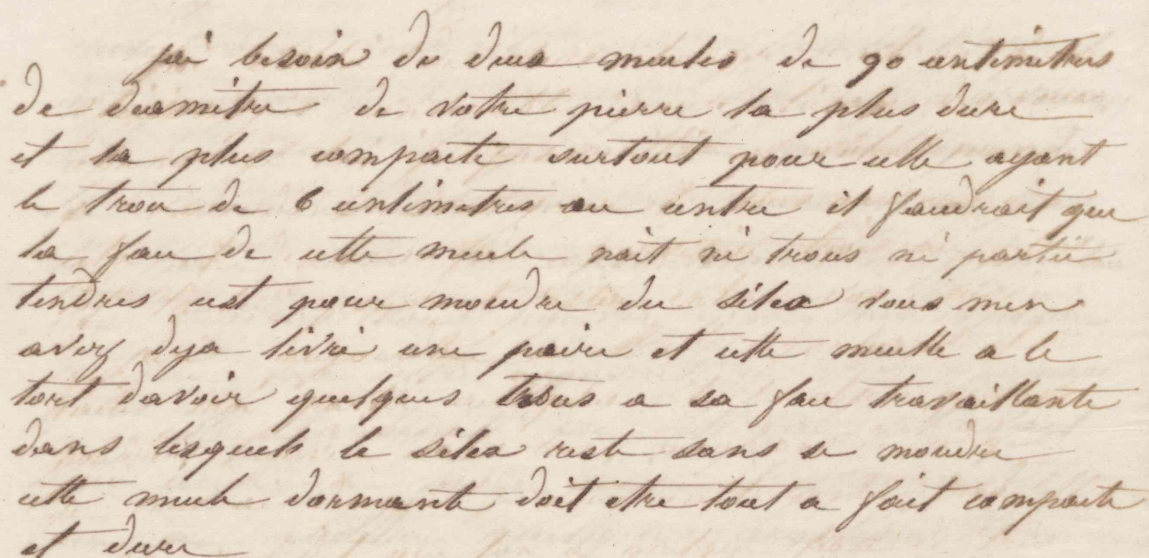 jai besoin de deux meules de 90 centimetres
de diamitre de votre pierre la plus dure
et la plus compacte surtout pour celle ayant
le trou de 6 centimetres au centre il faudrait que
la face de cette meule nait ni trous ni partie
tendres cest pour moudre du silex vous men
avez deja livré une paire et cette meulle a le
tort davoir quelques trous a sa face travaillante
dans lesquels le silex reste sans se moudre
cette meule dormante doit etre tout a fait compacte
et dure